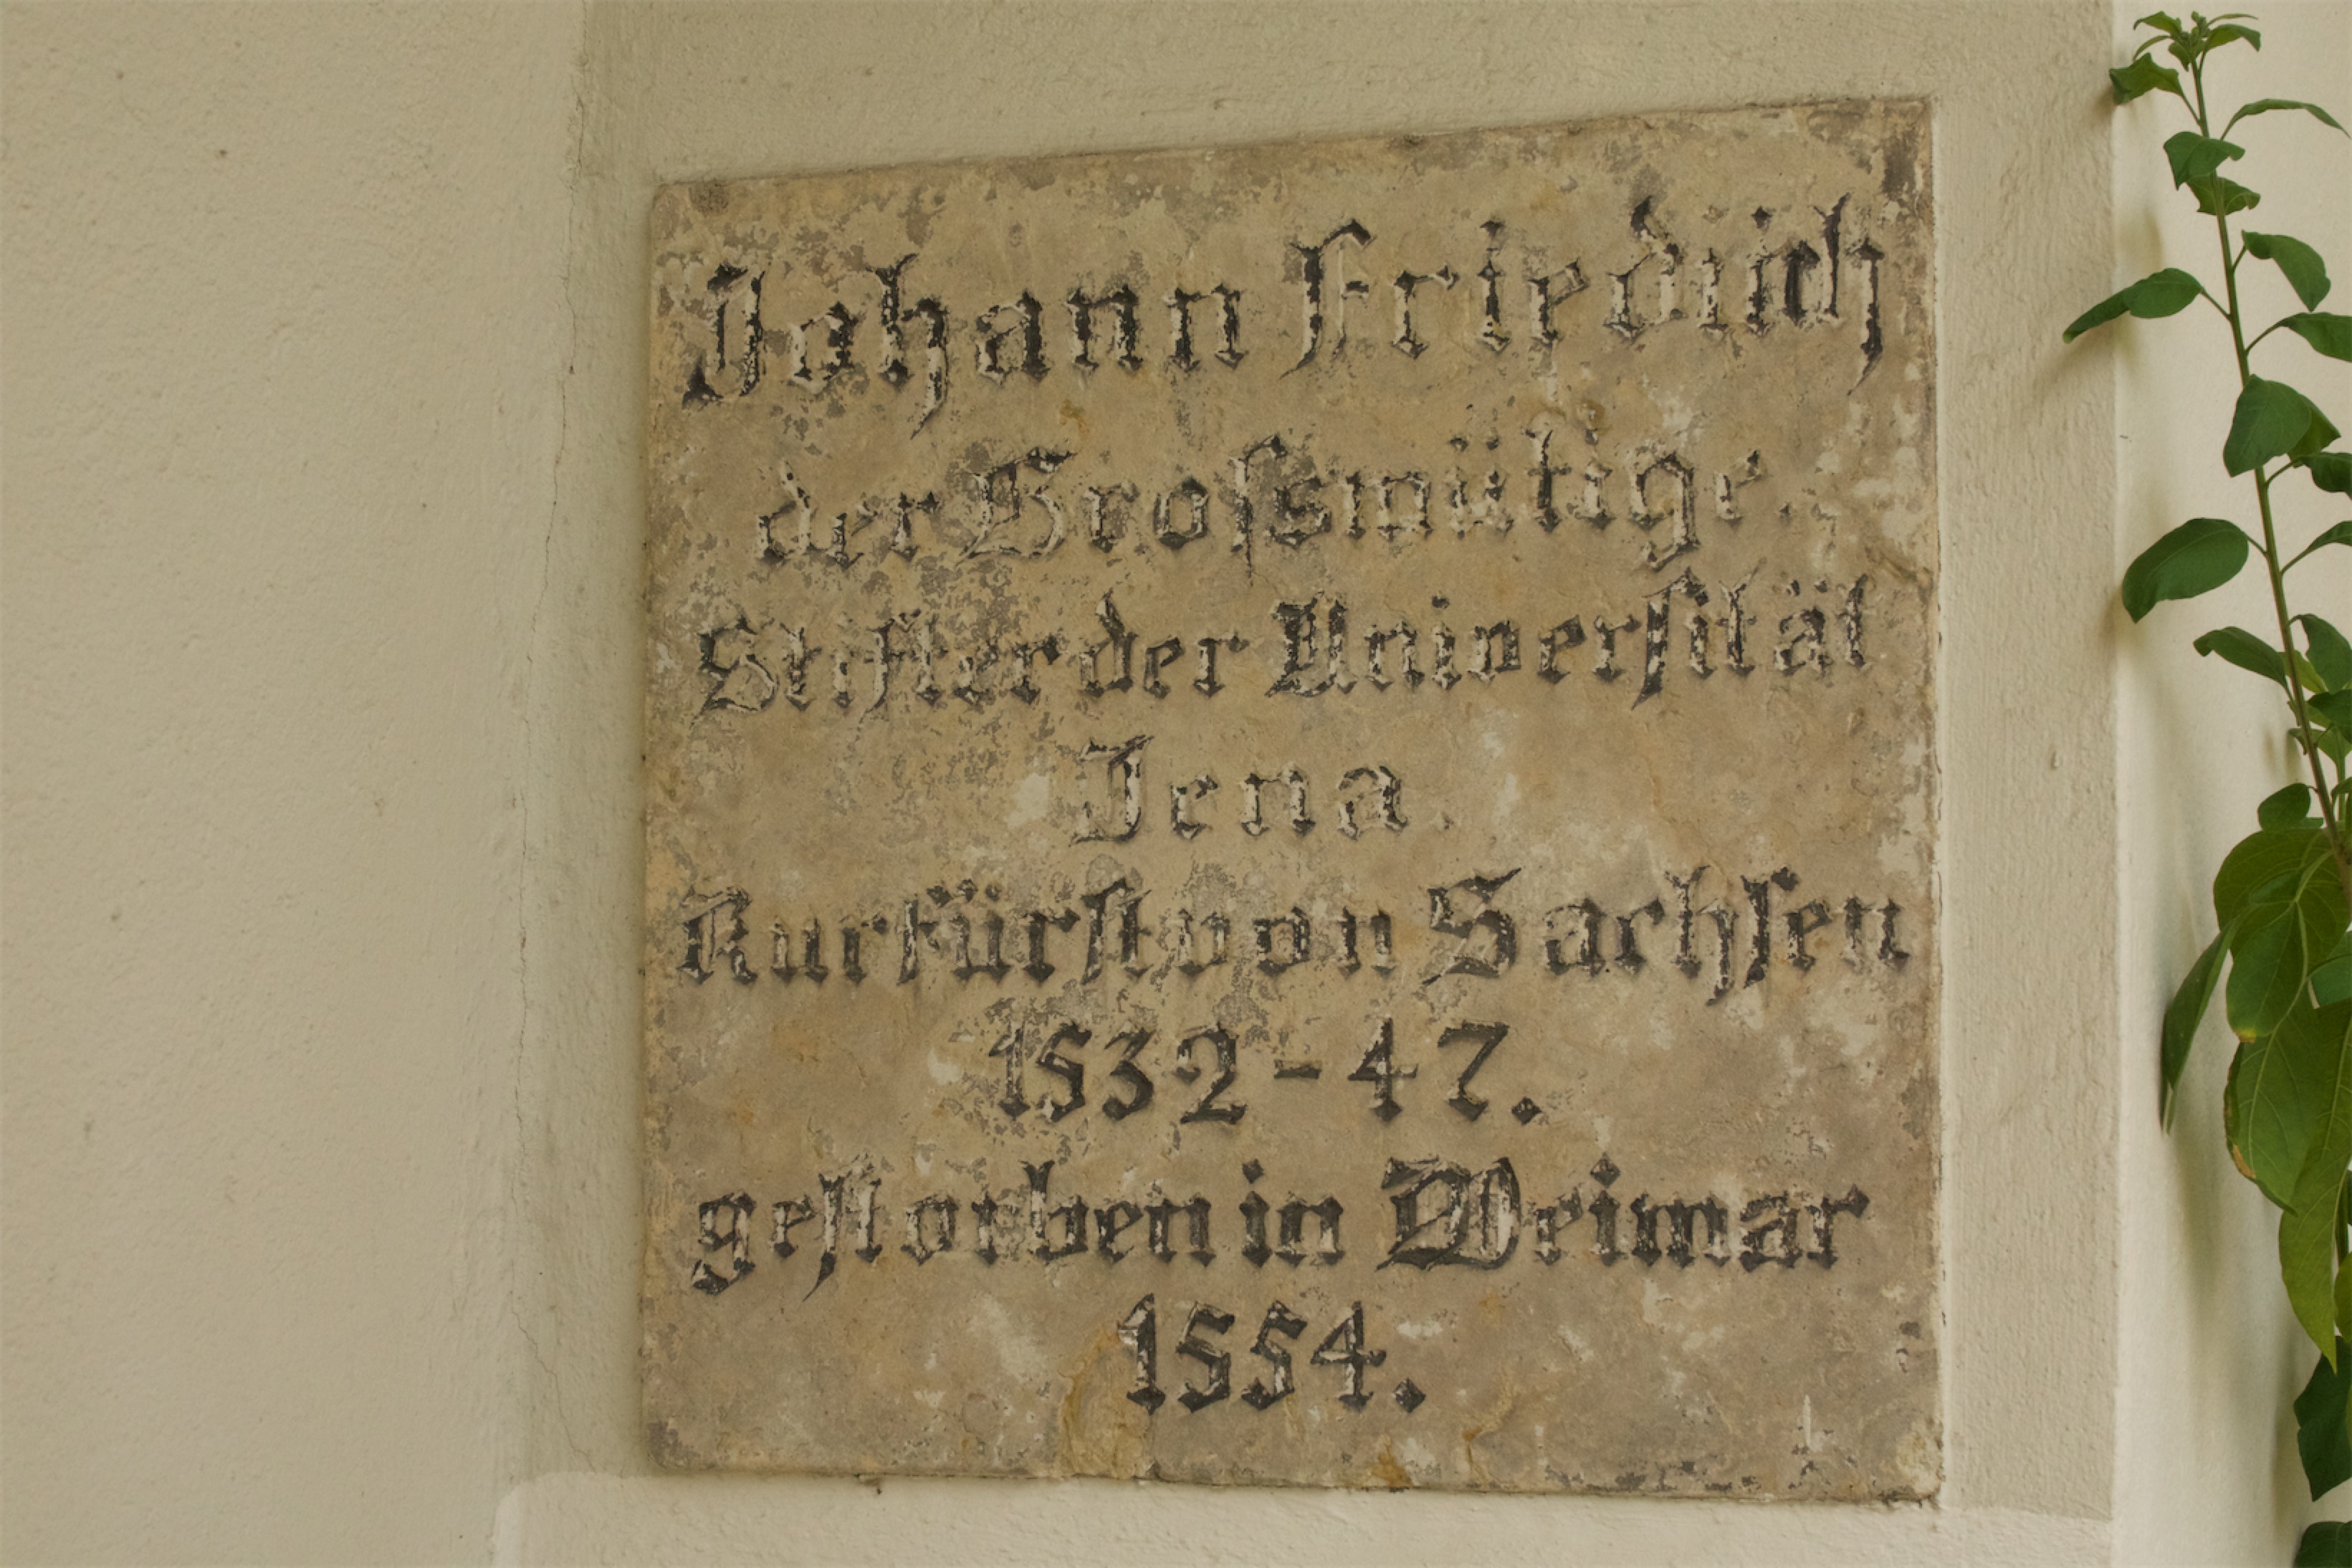 Johann Friedrich
der Großmütige.
Stifter der Universität
Jena.
Kurfürst von Sachsen
1532-47.
gestorben in Weimar
1554.